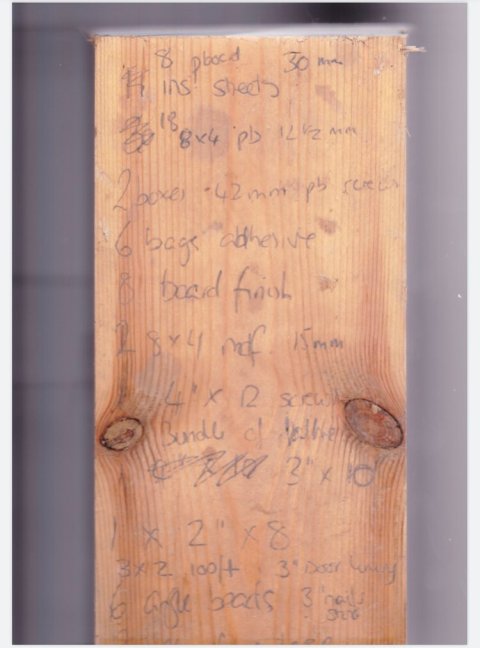 8 pboad 30 mm
ins sheets
18 8x4 pb 12 1/2 mm
2 boxes 42mm pb screws
6 bags adhesive
8 board finish
2 8x4 mdf 15mm
4" x 12 screws
Bundle of
3" x 10
1 x 2" x 8
3x2 100ft 3" Door lining
6 angle beads 3" nails